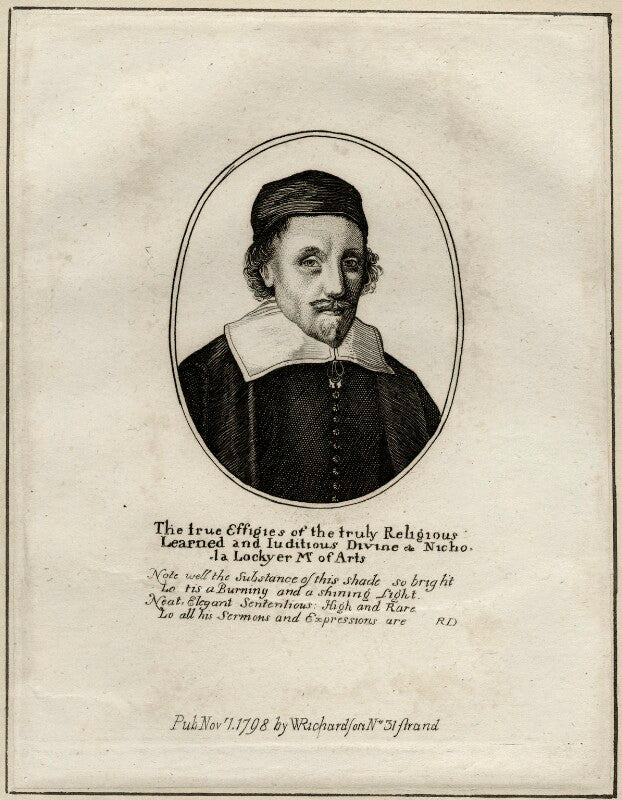 The true Effigies of the truly Religious
Learned and Iuditious Divine & Nicho.
.la Lockyer Mʳ of Arts
Note well the Substance of this shade so bright
Lo tis a Burning and a shining Light.
Neat, Elegant Sententious: High and Rare
Lo all his Sermons and Expressions are RD
Pub Novʳ 1. 1798 by WRichardſon Nº 31 ſtrand